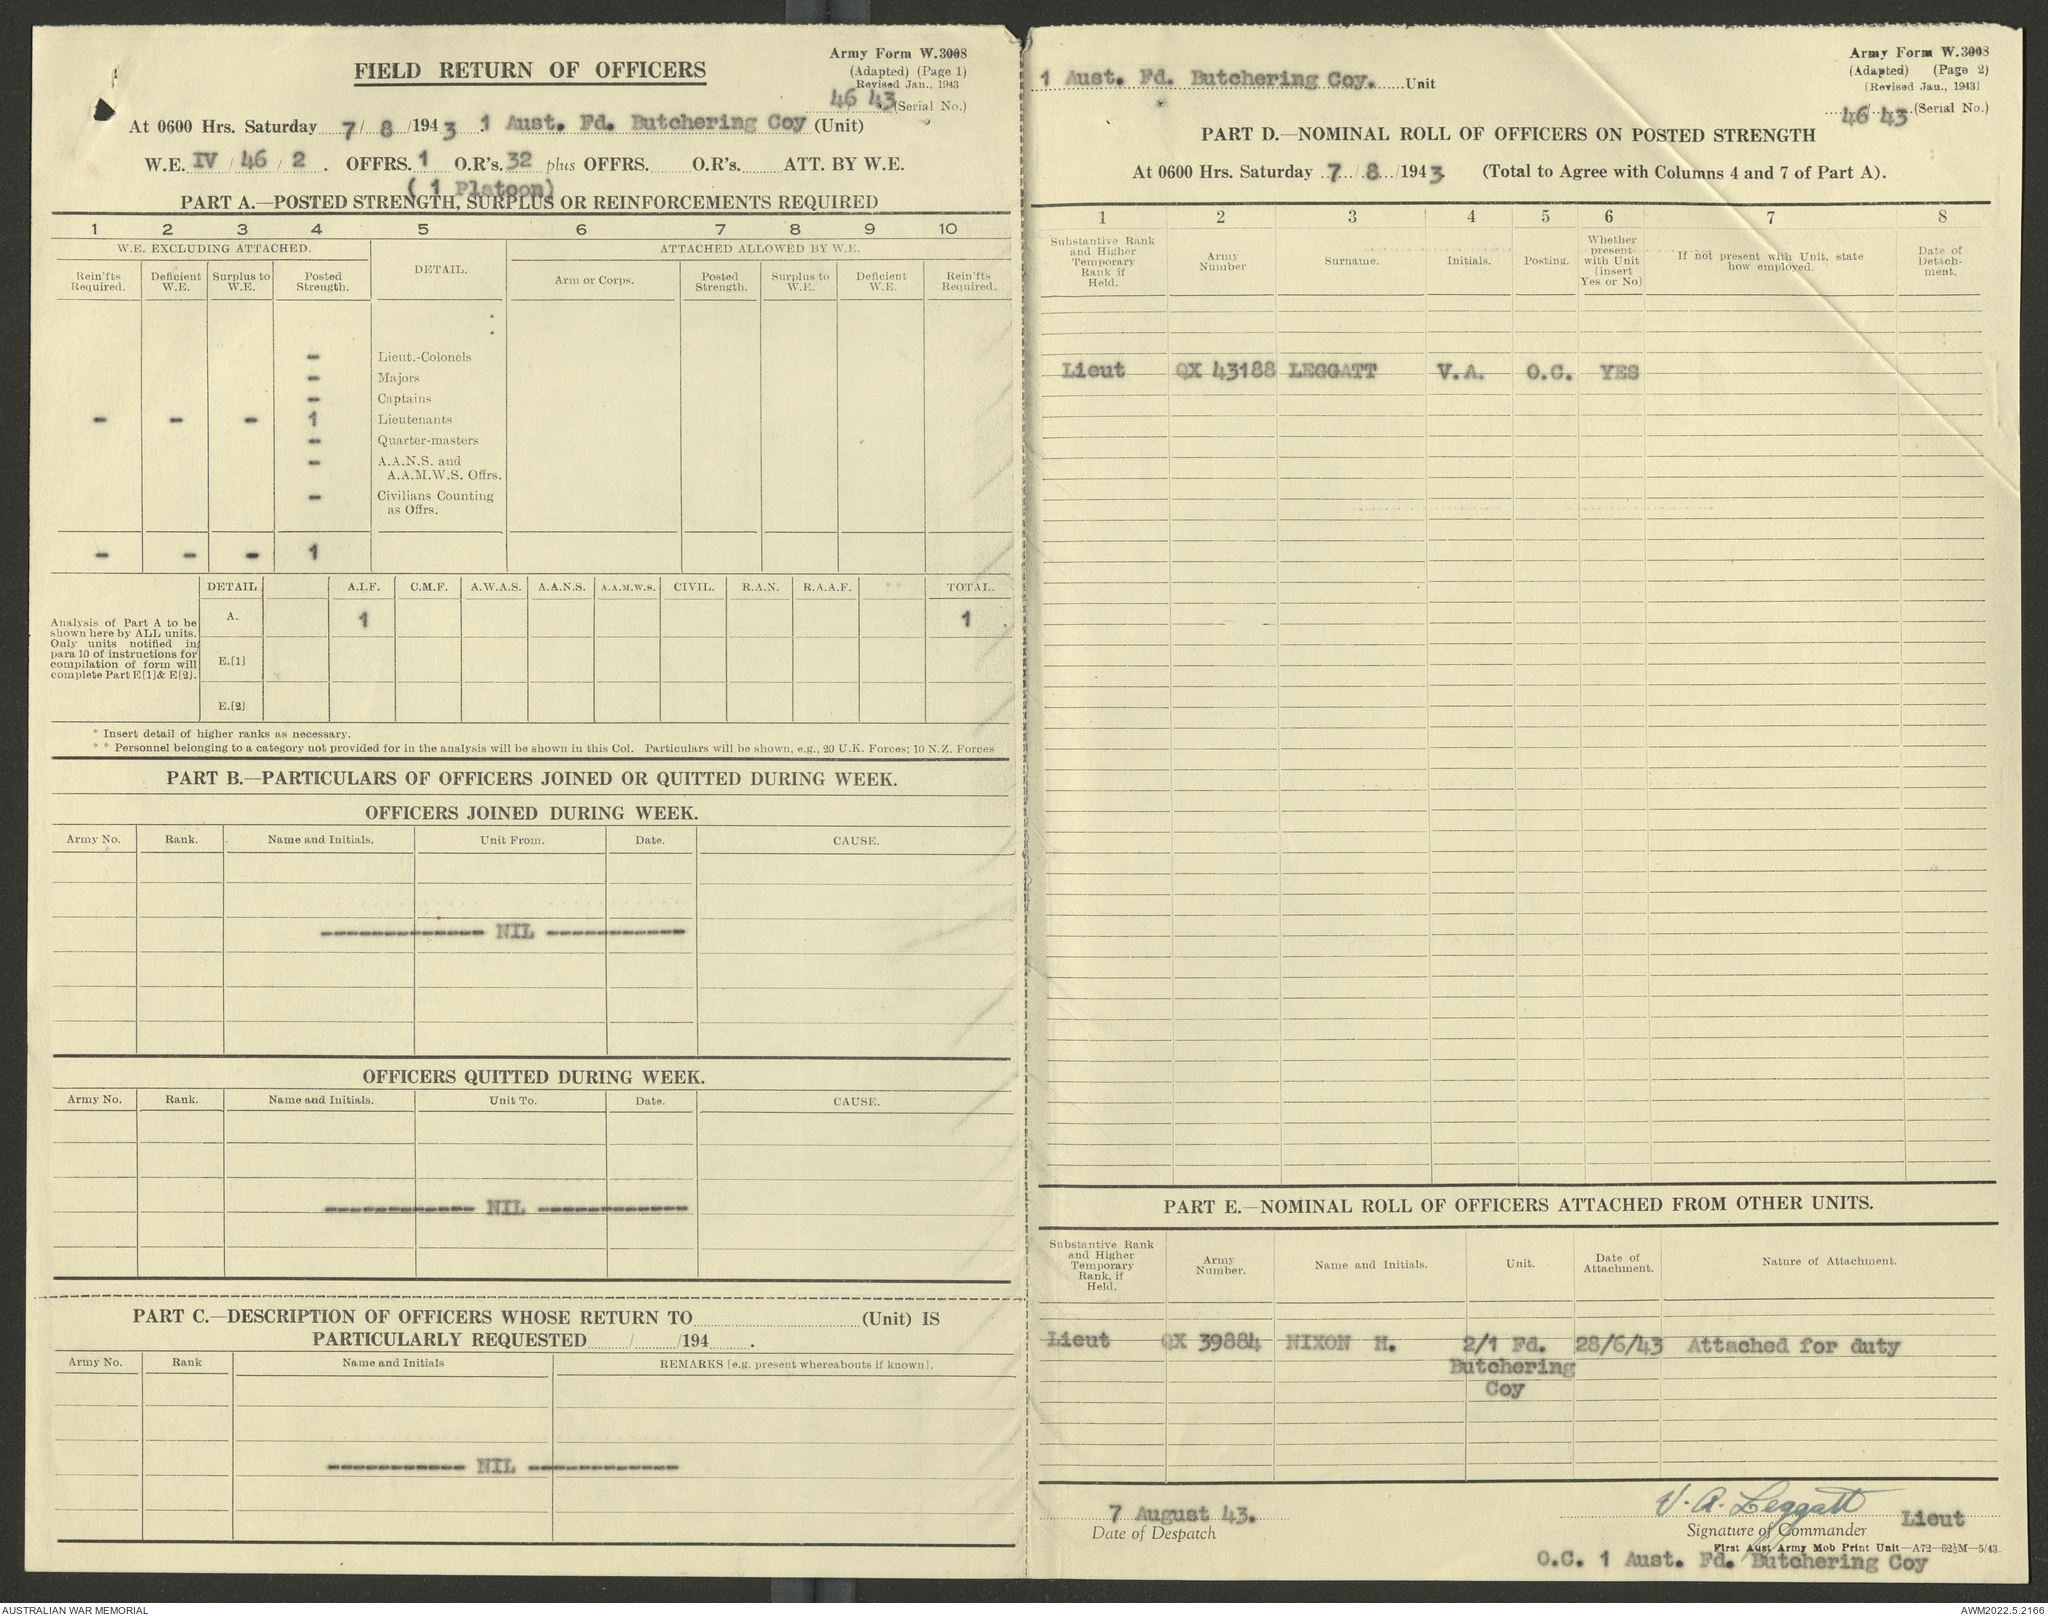 Army Form W.3008
FIELD RETURN OF OFFICERS
(Adapted) (Page 1)
Revised Jan., 1943
46 43 (Serial No.)
At 0600 Hrs. Saturday 7/ 8 /1943 1 Aust. Fd. Butchering Coy (Unit)
W.E. IV / 46 / 2 . OFFRS. 1 O.R's. 32 plus OFFRS. O.R's. ATT. BY W.E.
( 1 Platoon)
PART A.—POSTED STRENGTH, SURPLUS OR REINFORCEMENTS REQUIRED
1 2 3 4 5 6 7 8 9 10
W.E. EXCLUDING ATTACHED. DETAIL. ATTACHED ALLOWED BY W.E.
Rein'fts Required. Deficient W.E. Surplus to W.E. Posted Strength. Arm or Corps. Posted Strength. Surplus to W.E. Deficient W.E. Rein'fts Required.
- Lieut.-Colonels
- Majors
- Captains
- - - 1 Lieutenants
- Quarter-masters
- A.A.N.S. and
A.A.M.W.S. Offrs.
- Civilians Counting
as Offrs.
- - - 1
DETAIL A.I.F. C.M.F. A.W.A.S. A.A.N.S. A.A.M.W.S. CIVIL. R.A.N. R.A.A.F. * * TOTAL.
A. 1 1
Analysis of Part A to be
shown here by ALL units.
Only units notified in
para 10 of instructions for
compilation of form will
complete Part E[1]& E[2].
E.[1]
E.[2]
* Insert detail of higher ranks as necessary.
* * Personnel belonging to a category not provided for in the analysis will be shown in this Col. Particulars will be shown, e.g., 20 U.K. Forces; 10 N.Z. Forces
PART B.—PARTICULARS OF OFFICERS JOINED OR QUITTED DURING WEEK.
OFFICERS JOINED DURING WEEK.
Army No. Rank. Name and Initials. Unit From. Date. CAUSE.
--------------- NIL -------------
OFFICERS QUITTED DURING WEEK.
Army No. Rank. Name and Initials. Unit To. Date. CAUSE.
-------------- NIL --------------
PART C.—DESCRIPTION OF OFFICERS WHOSE RETURN TO (Unit) IS
PARTICULARLY REQUESTED / /194 .
Army No. Rank Name and Initials REMARKS [e.g. present whereabouts if known].
------------- NIL --------------
Army Form W.3008
1 Aust. Fd. Butchering Coy. Unit
(Adapted) (Page 2)
[Revised Jan., 1943]
46 43 (Serial No.)
PART D.—NOMINAL ROLL OF OFFICERS ON POSTED STRENGTH
At 0600 Hrs. Saturday 7 / 8 /1943. (Total to Agree with Columns 4 and 7 of Part A).
1 2 3 4 5 6 7 8
Substantive Rank and Higher Temporary Rank if Held. Army Number Surname. Initials. Posting. Whether present with Unit [insert Yes or No] If not present with Unit, state how employed. Date of Detach-ment.
Lieut QX 43188 LEGGATT V.A. O.C. YES
PART E.—NOMINAL ROLL OF OFFICERS ATTACHED FROM OTHER UNITS.
Substantive Rank and Higher Temporary Rank, if Held. Army Number. Name and Initials. Unit. Date of Attachment. Nature of Attachment.
Lieut QX 39884 NIXON H. 2/1 Fd. 28/6/43 Attached for duty
Butchering
Coy
7 August 43.
Date of Despatch
V. A. Leggatt Lieut
Signature of Commander
First Aust Army Mob Print Unit—A72—62½M—5/43.
O.C. 1 Aust. Fd. Butchering Coy
AUSTRALIAN WAR MEMORIAL
AWM2022.5.2166